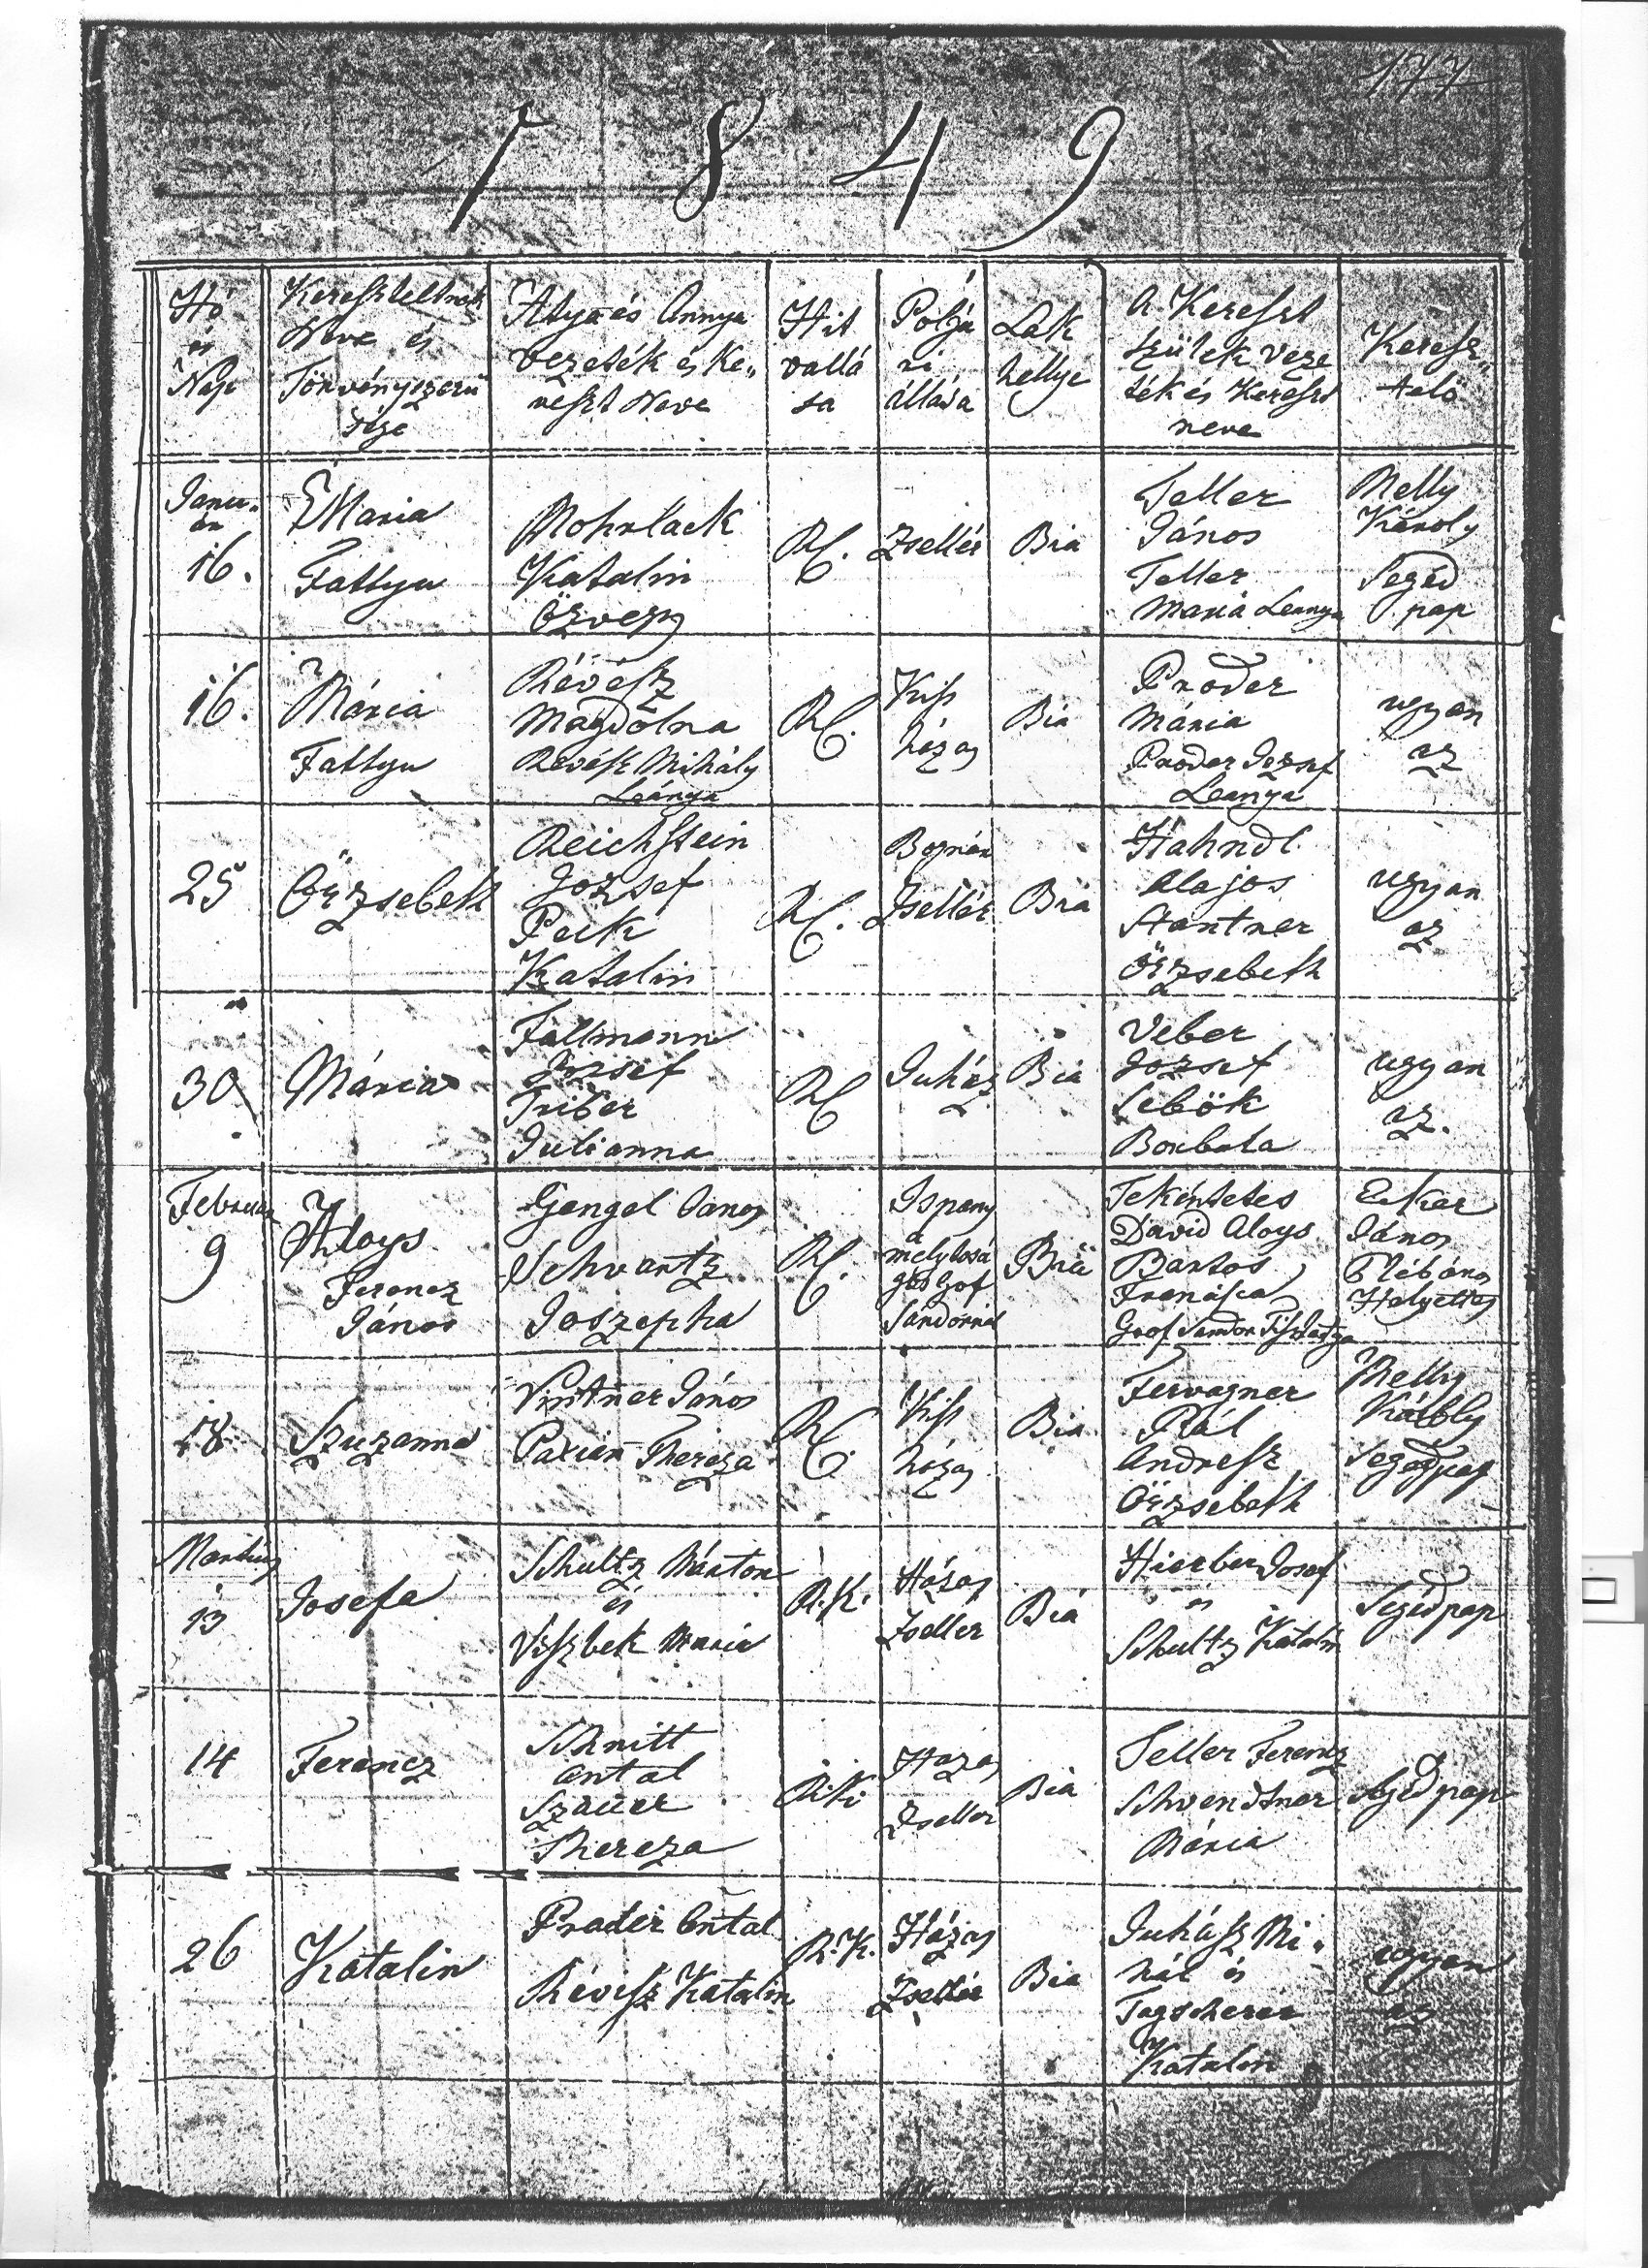 177
1849
Hó
és
Nap
Kereszteltnek
Neve és
Törvényszerü
sége
Atya és Annya
Vezeték és Ke„
reszt Neve
Hit
vallá
sa
Polgá
ri
állása
Lak
hellye
A Kereszt
szülek Veze
ték és Kereszt
neve
Keresz„
telö
Janu„
ár
16.
Maria
Fattyu
Mohrlack
Katalin
Özvegy
RC.
Zsellér
Bia
Teller
János
Teller
Maria Leanya
Melly
Károly
Segéd
pap
16.
Mária
Fattyu
Révész
Magdolna
Révész Mihály
Leánya
RC.
Kiss
házas
Bia
Proder
Mária
Proder Jozsef
Leanya
ugyan
az
25
Örzsebeth
Reichstein
Jozsef
Peck
Katalin
RC.
Bognár
Zsellér
Bia
Hahndl
Alajos
Stantner
Örzsebeth
ugyan
az
30
Mária
Fallmann
Jozsef
Triber
Julianna
RC
Juház
Bia
Veber
Jozsef
Sebök
Borbala
ugyan
az.
Februar
9
Aloys
Ferencz
János
Gengel Janos
Schvartz
Joszepha
RC.
Ispany
a
melylosá
gos Grof
Sándornál
Bia
Tekéntetes
David Aloys
Bartos
Francisca
Grof Sandor Tisztartya
Ecker
János
Plébános
Helyettes
18
Szuzanna
Vintner János
Thereza
RC.
Kiss
házas
Bia
Fervagner
Pál
Andresz
Örzsebeth
Melly
Károly
Segédpap
Martius
13
Josefa
Schultz Márton
és
Viszbek Maria
R.K.
Házas
Zseller
Bia
Hierber Josef
és
Schultz Katalin
Segédpap
14
Ferencz
Schnitt
Antal
Szauer
Thereza
R.K.
Hazas
Zseller
Bia
Teller Ferencz
Schvendtner
Mária
Segédpap
26
Katalin
Prader Antal
Révész Katalin
R.K.
Házas
Zsellér
Bia
Juhász Mi„
hál és
Tagscherer
Katalin
ugyan
az